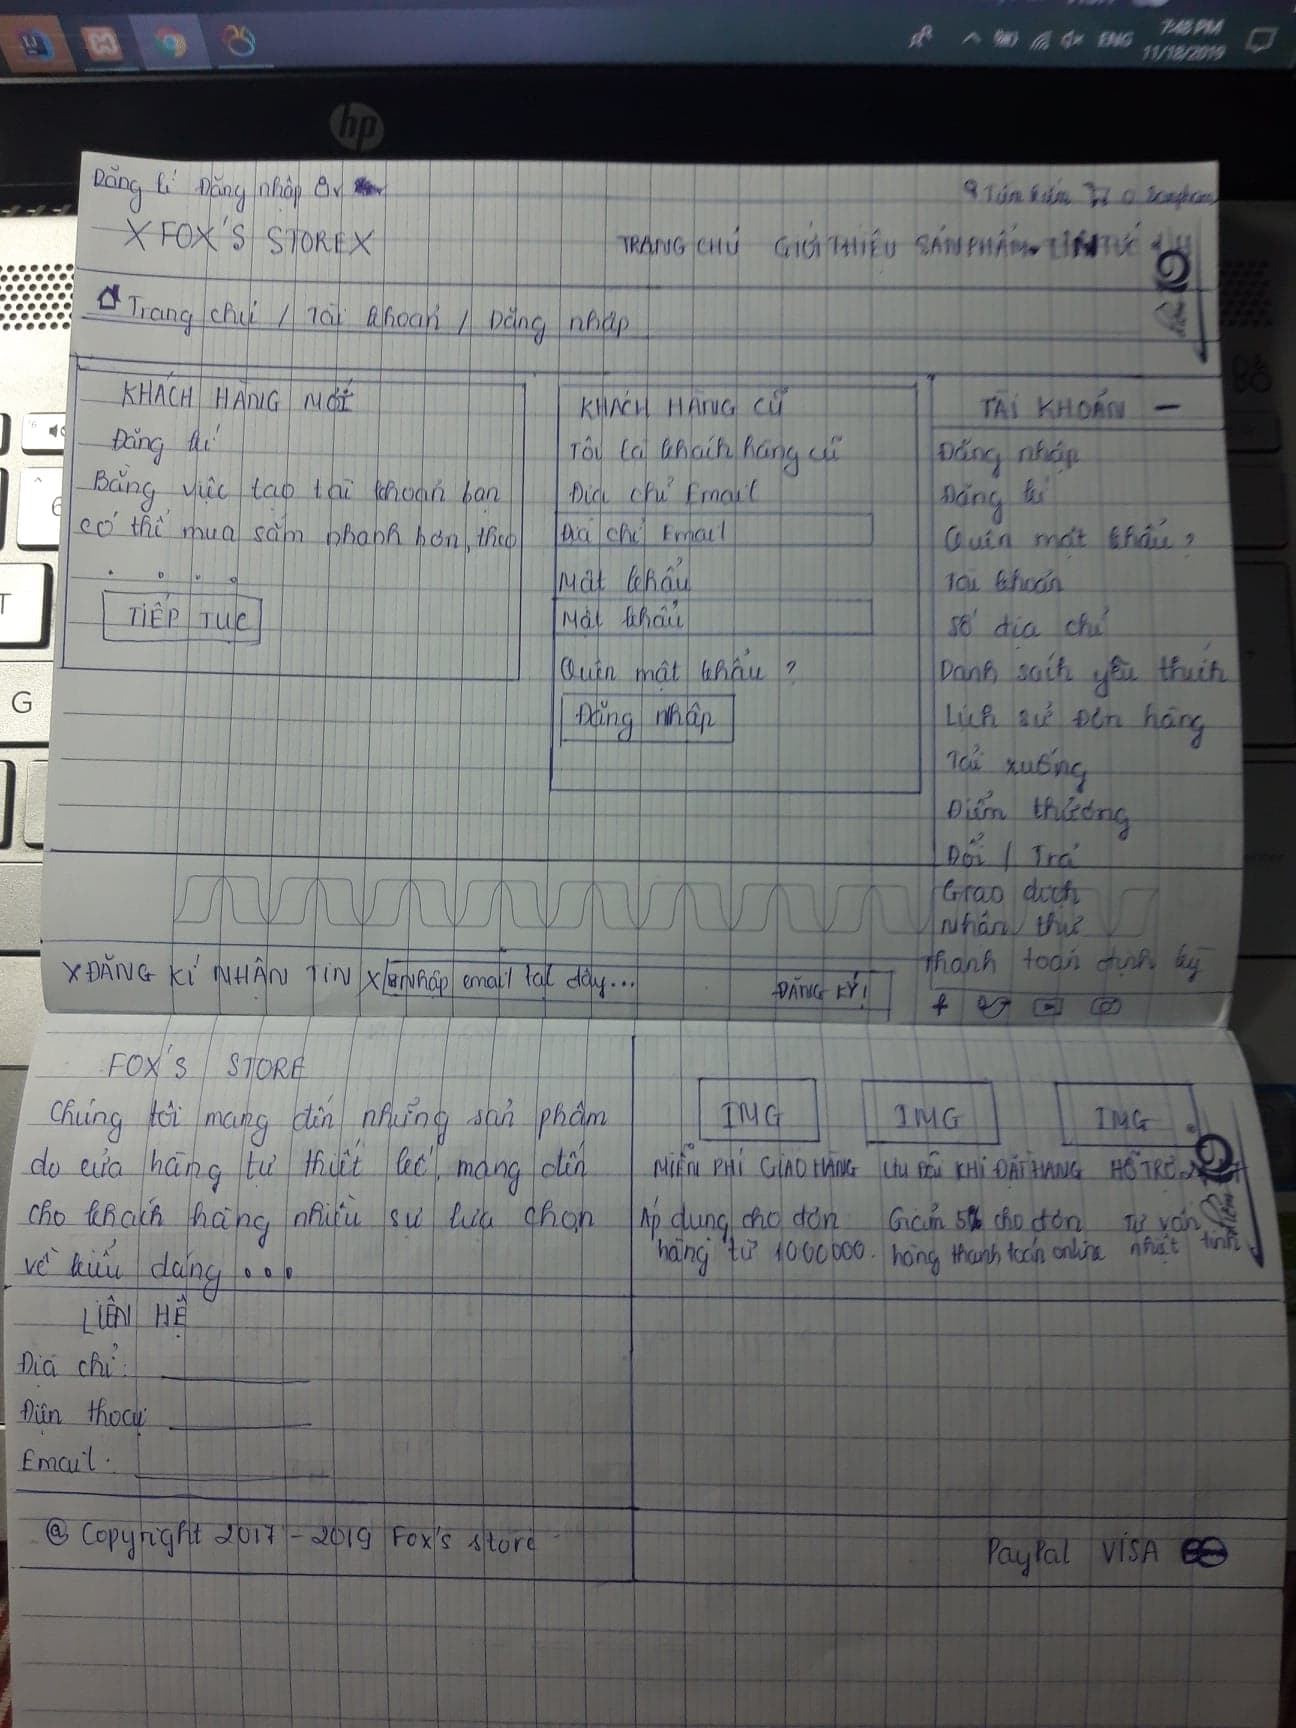 7:45 PM
ENG
11/18/2019
hp
Đăng kí Đăng nhập
Tìm kiếm 0 Sanpham
X FOX'S STORE X
TRANG CHỦ GIỚI THIỆU SẢN PHẨM TIN TỨC
Trang chủ / Tài khoản / Đăng nhập
KHÁCH HÀNG MỚI
Đăng kí
Bằng việc tạo tài khoản bạn
có thể mua sắm nhanh hơn, theo
. . . .
TIẾP TỤC
KHÁCH HÀNG CŨ
Tôi là khách hàng cũ
Địa chỉ Email
Địa chỉ Email
Mật khẩu
Mật khẩu
Quên mật khẩu ?
Đăng nhập
TÀI KHOẢN −
Đăng nhập
Đăng kí
Quên mật khẩu ?
Tài khoản
Số địa chỉ
Danh sách yêu thích
Lịch sử Đơn hàng
Tải xuống
Điểm thưởng
Đổi / Trả
Giao dịch
Nhận thư
Thanh toán định kỳ
X ĐĂNG KÍ NHẬN TIN X Nhập email tại đây...
ĐĂNG KÝ!
FOX'S STORE
Chúng tôi mang đến những sản phẩm
do cửa hàng tự thiết kế, mang đến
cho khách hàng nhiều sự lựa chọn
về kiểu dáng ...
IMG IMG IMG
MIỄN PHÍ GIAO HÀNG
Áp dụng cho đơn
hàng từ 1000000.
ƯU ĐÃI KHI ĐẶT HÀNG
Giảm 5% cho đơn
hàng thanh toán online
HỖ TRỢ
Tư vấn
nhiệt tình
LIÊN HỆ
Địa chỉ:
Điện thoại
Email:
@ Copyright 2017 - 2019 Fox's store
PayPal VISA
G
T
6